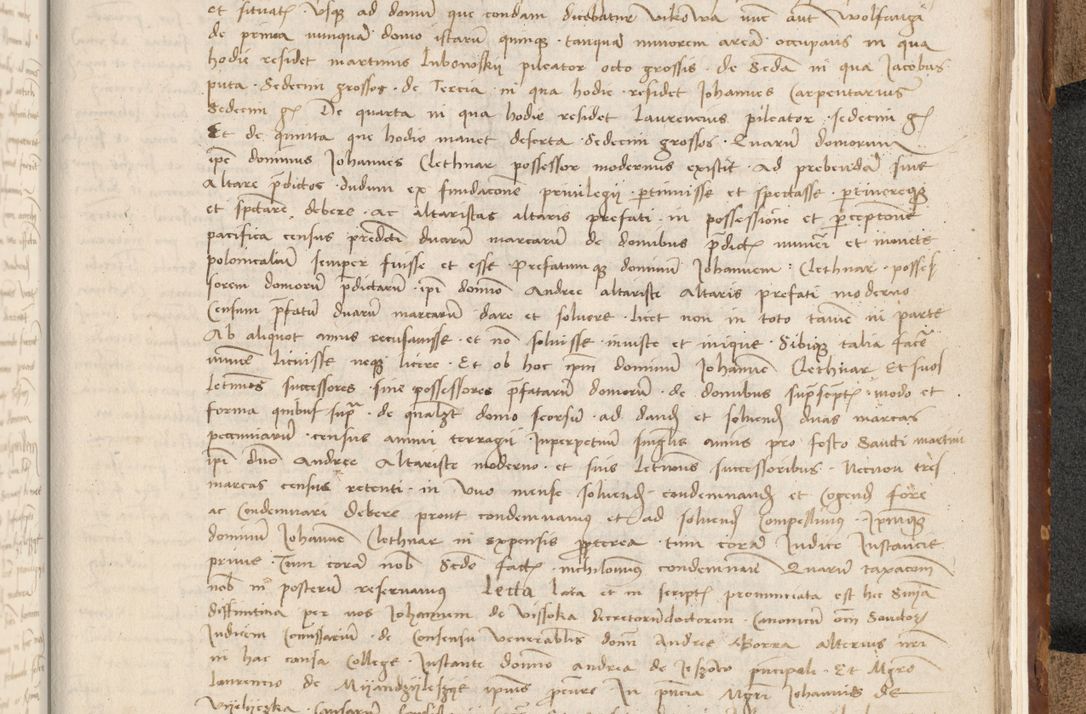 et situatis Usque ad domum que condam dicebatur vikowa nunc aut Wolfcuga
de prima nunquam domo istarum quinque tanquam minorem aream occupatis in qua
hodie residet martinus Lubonoskij pileator octo grossis de Seda in qua Jacobus
puta Sedecim grossos de Tercia in qua hodie residet Johannes Carpentarius
Sedecim gs De quarta in qua hodie residet Laurencius pileator sedecim gs
Et de quinta que hodie manet deserta Sedecim grossos Quarum domorum
ipse dominus Johannes Clethnar possessor modernus existit Ad prebendam sive
Altare pdictos dudum ex fundacione privilegij ptinuisse et spectasse ptinereque
et spectare debere Ac altaristas altaris prefati in possessione et perceptione
pacifica census predicti duarum marcarum de domibus pdictis numeri et monete
polonicalium semper fuisse et esse Prefatumque dominum Johannem Clethnar posses
sorem domorum pdictarum ipi domino Andree altariste Altaris prefati moderno
Censum pfatum duarum marcarum dare et solvere licet non in toto tamen in parte
Ab aliquot annis recusavisse et non solvisse iniuste et inique Sibique talia facere
minime licuisse neque licere Et ob hoc ipm dominum Johannem Clethnar Et suos
letimos successores sive possessores pfatarum domorum de domibus supscriptis modo et
forma quibus supra de qualibet domo seorsum ad dand et solvend duas marcas
pecuniarum census annui terragij Inperpetuum singulis annis pro festo Sancti martini
ipi dno Andree Altariste moderno et suis letimis successoribus Necnon tres
marcas census retenti in uno mense solvend condemnand et Cogend fore
ac Condemnari debere prout condemnamus et ad solvend Compellimus Ipmque
dominum Johannem Clethnar in expensis propterea tum coram Iudice Instancie
prime Tum coram nobis Sede factis nichilominus condemnam Quarum taxacionem
nobis in posterum reservamus Lecta lata et in scriptis pronunciata est hec Sniam
diffinitiva per nos Johannem de Vissoka decretorum doctorem Canonicum Omni Sanctorum
Iudicem Comissarium de Consensu Venerabilis domini Andree Gorra alterius nri
in hac causa College Instante domino Andrea de Jeszow principali Et Mgro
Laurencio de Myandzylesszye ipius procure In pncia Mgri Johannis de